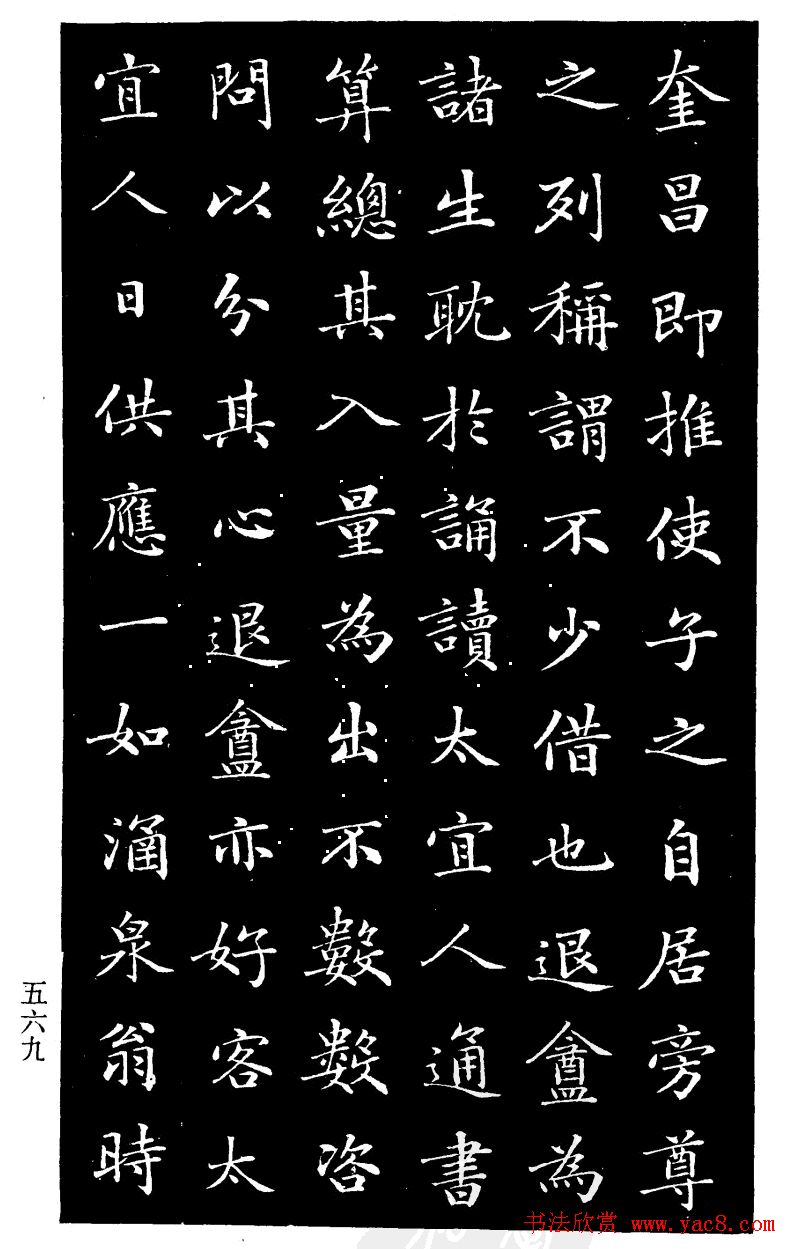 奎昌即推使子之自居旁尊
之列稱謂不少借也退盦為
諸生耽於誦讀太宜人通書
算總其入量為出不數數咨
問以分其心退盦亦好客太
宜人日供應一如涌泉翁時
五六九
书法欣赏 www.yac8.com